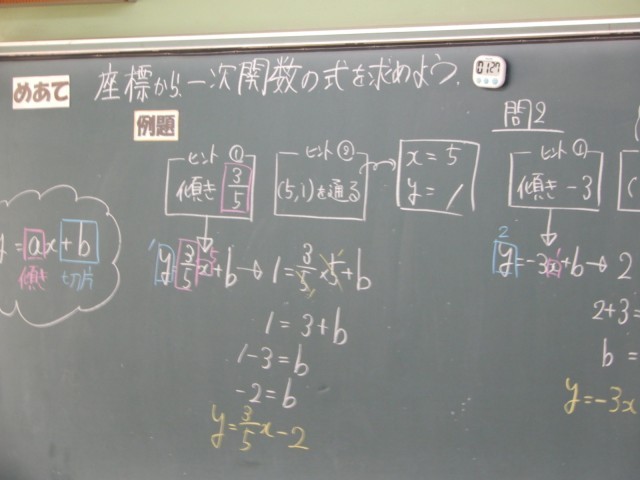 めあて 座標から一次関数の式を求めよう.
0127
例題
ヒント①
傾き 3/5
ヒント②
(5,1)を通る
x = 5
y = 1
y = ax + b
傾き 切片
y = 3/5 x + b → 1 = 3/5 × 5 + b
1 = 3 + b
1 - 3 = b
-2 = b
y = 3/5 x - 2
問2
ヒント①
傾き -3
(
2
y = -3x + b → 2
2+3=
b =
y = -3x